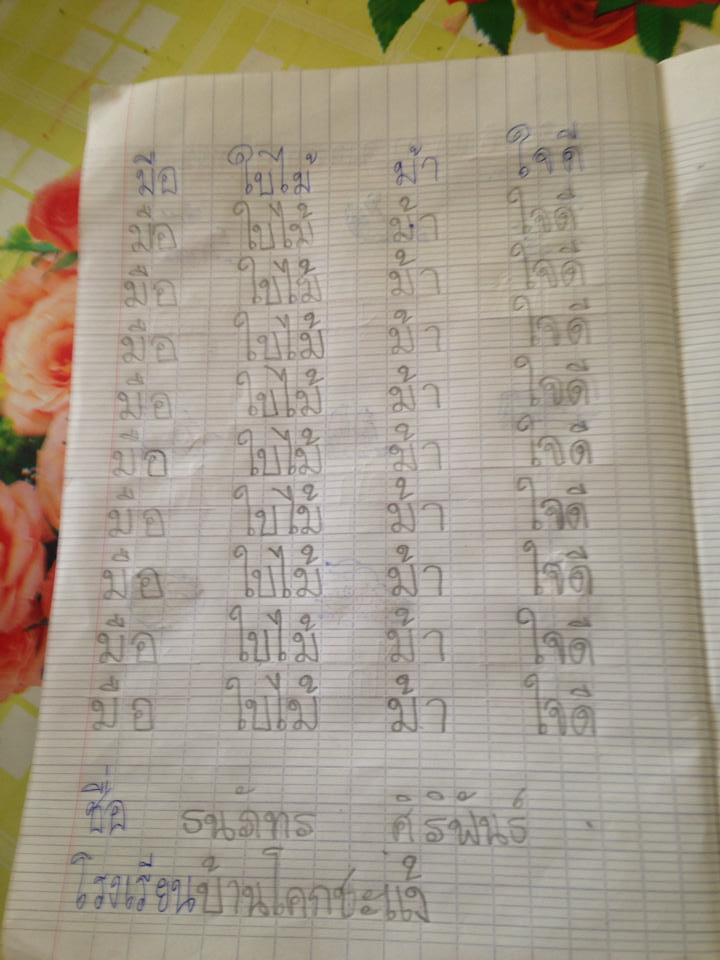 มือ ใบไม้ ม้า ใจดี
มือ ใบไม้ ม้า ใจดี
มือ ใบไม้ ม้า ใจดี
มือ ใบไม้ ม้า ใจดี
มือ ใบไม้ ม้า ใจดี
มือ ใบไม้ ม้า ใจดี
มือ ใบไม้ ม้า ใจดี
มือ ใบไม้ ม้า ใจดี
มือ ใบไม้ ม้า ใจดี
มือ ใบไม้ ม้า ใจดี
ชื่อ ธนภัทร ศิริพันธ์
โรงเรียนบ้านโคกชะแง้